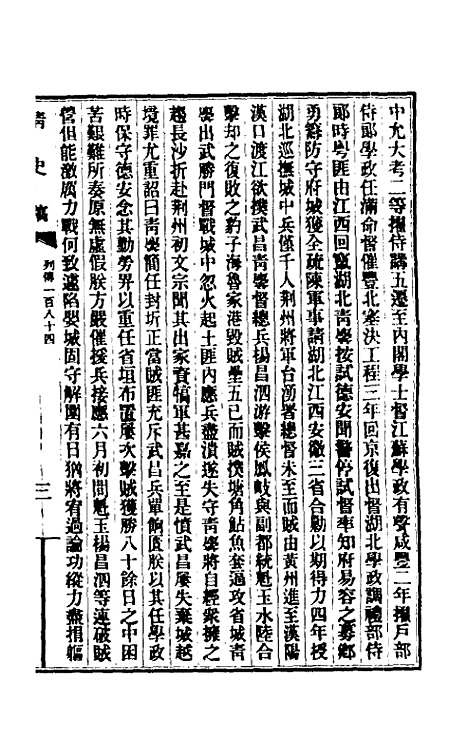 中允大考二等擢侍講五遷至內閣學士督江蘇學政有聲咸豐二年擢戶部
侍郎學政任滿命督催豐北塞決工程三年回京復出督湖北學政調禮部侍
郎時粵匪由江西回竄湖北青麐按試德安聞警停試督率知府易容之募鄉
勇籌防守府城獲全疏陳軍事請湖北江西安徽三省合勦以期得力四年授
湖北巡撫城中兵僅千人荊州將軍台湧署總督未至而賊由黃州進至漢陽
漢口渡江欲撲武昌青麐督總兵楊昌泗游擊侯鳳岐與副都統魁玉水陸合
擊却之復敗之豹子海魯家港毀賊壘五已而賊撲塘角鮎魚套逼攻省城青
麐出武勝門督戰城中忽火起土匪內應兵盡潰遂失守青麐將自經眾擁之
趨長沙折赴荊州初文宗聞其出家貲犒軍甚嘉之至是憤武昌屢失棄城越
境罪尤重詔曰青麐簡任封圻正當賊匪充斥武昌兵單餉匱朕以其任學政
時保守德安念其勤勞畀以重任省垣布置屢次擊賊獲勝八十餘日之中困
苦艱難所奏原無虛假朕方嚴催援兵接應六月初間魁玉楊昌泗等連破賊
營但能激厲力戰何致遽陷嬰城固守解圍有日猶將宥過論功縱力盡捐軀
清史稿 列傳一百八十四 二